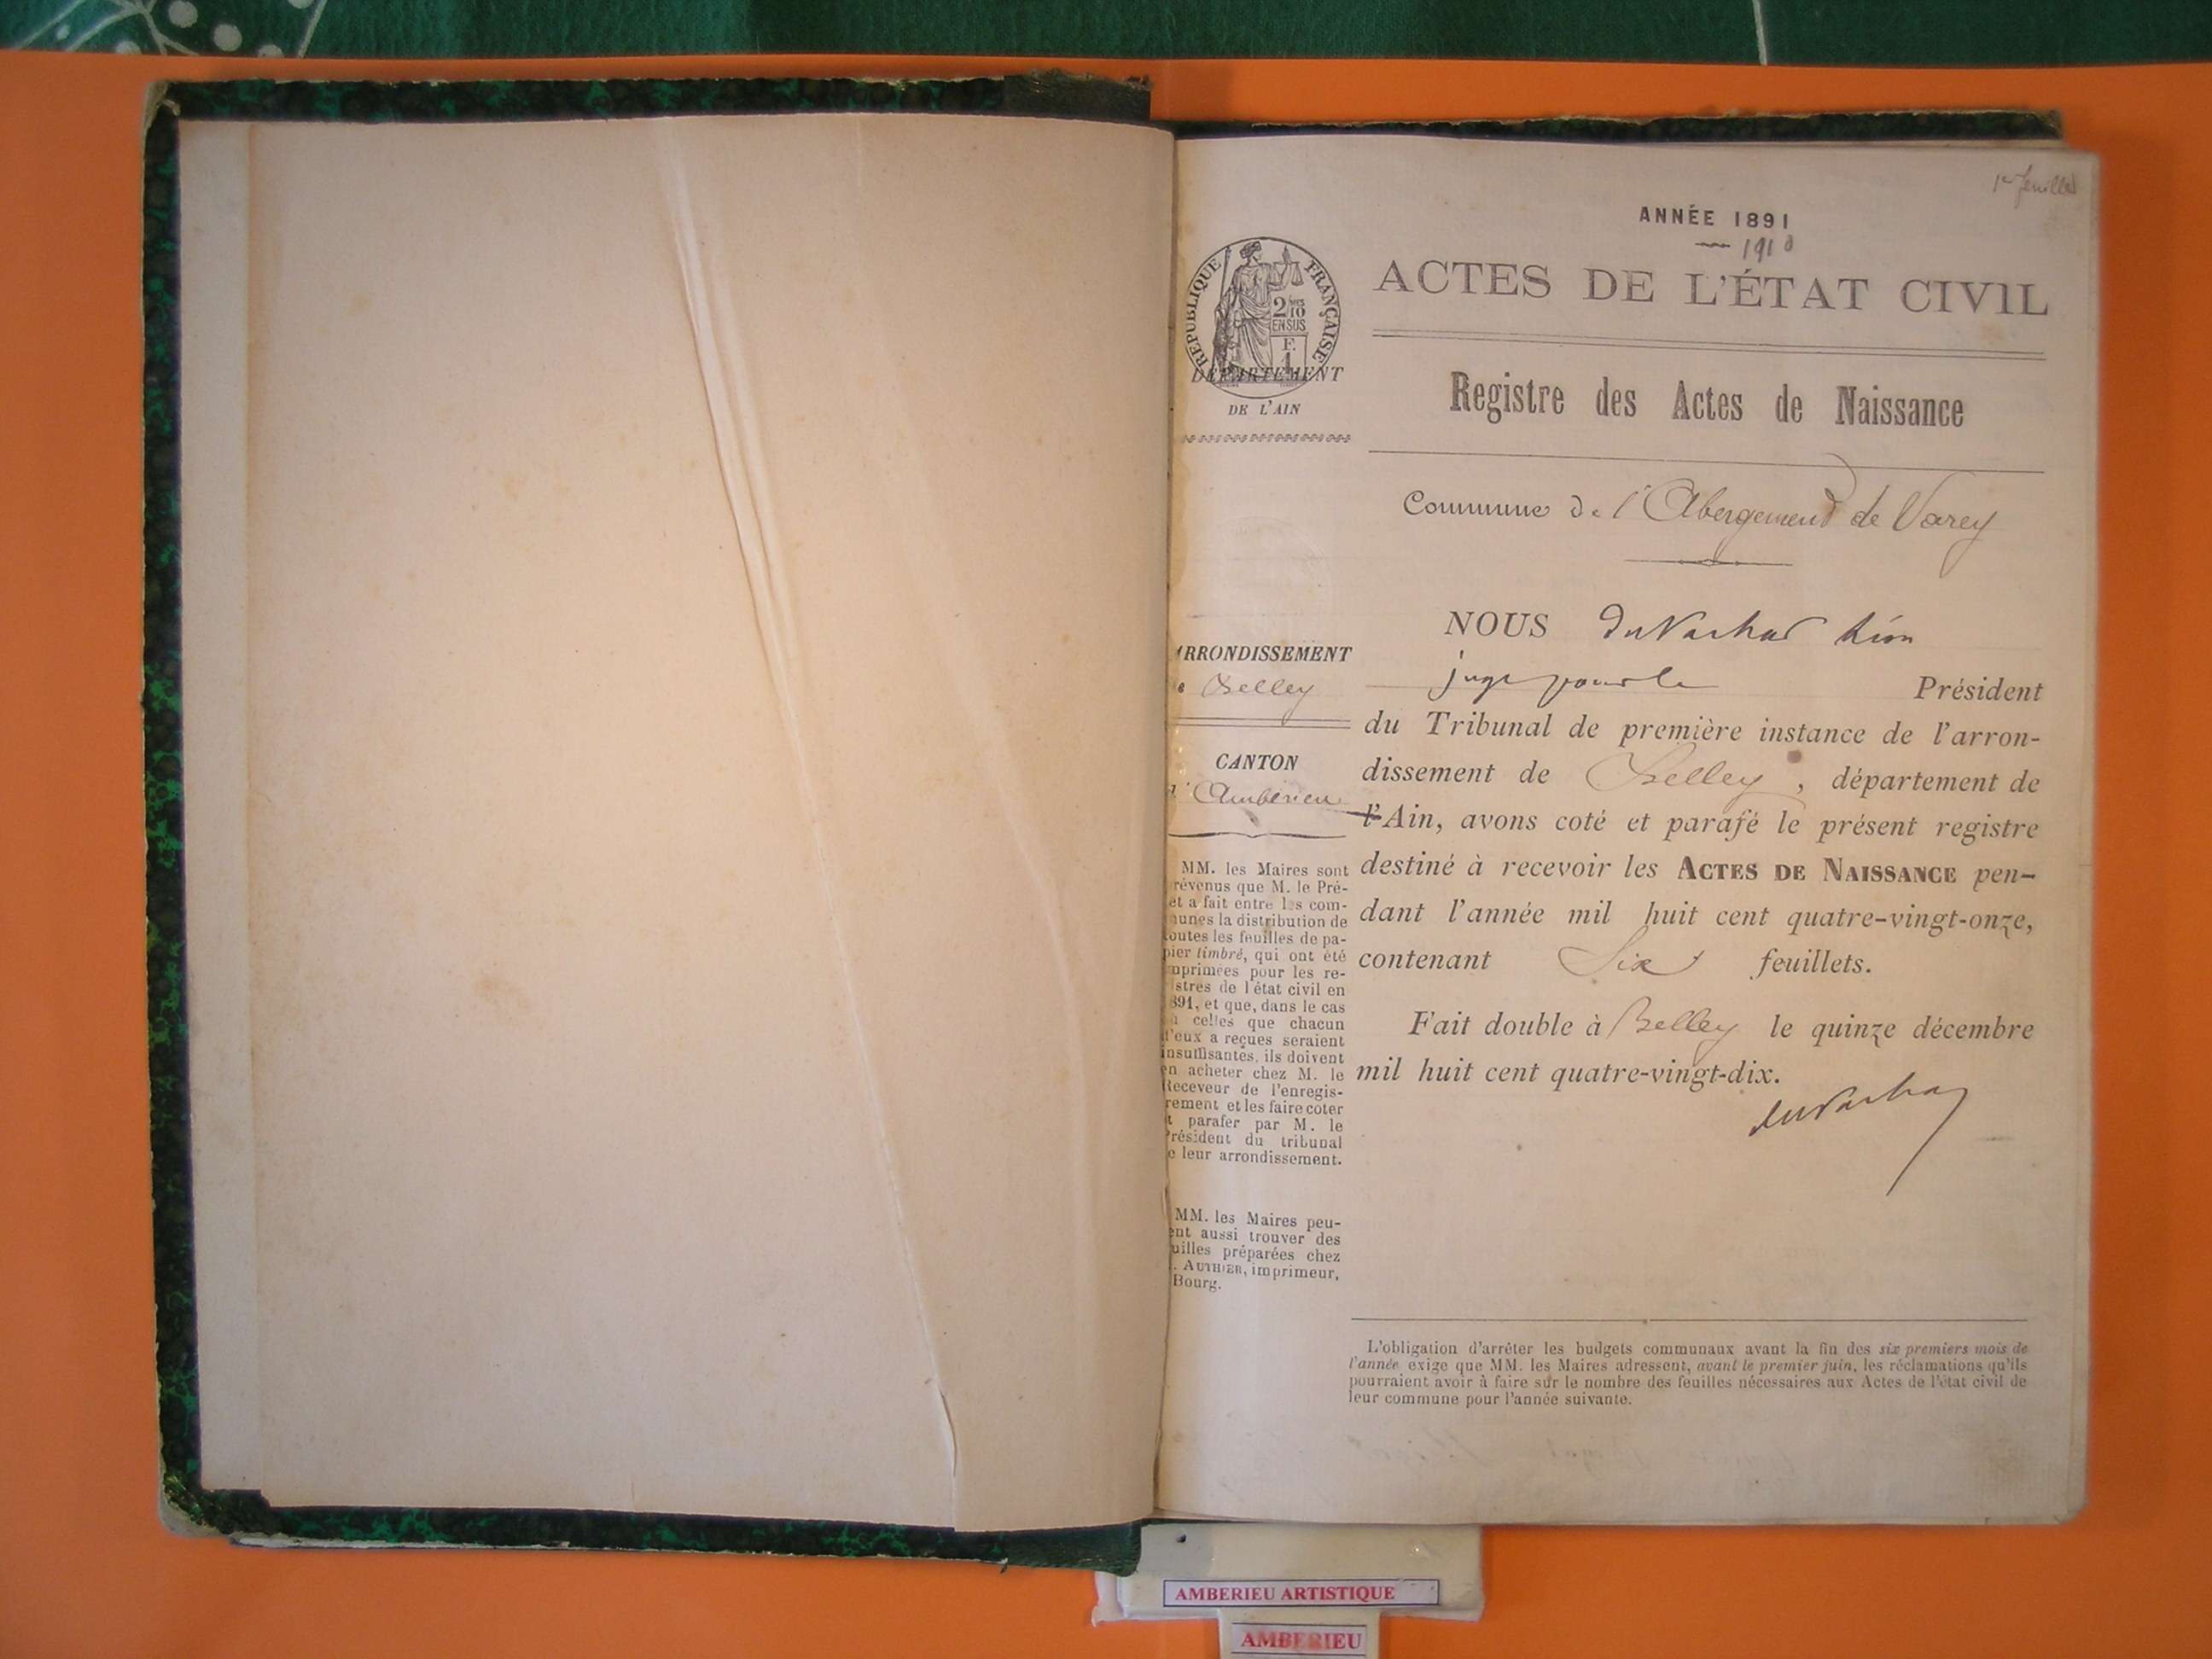 1er feuillet
ANNÉE 1891
1910
ACTES DE L'ÉTAT CIVIL
RÉPUBLIQUE FRANÇAISE
2/10 EN SUS
F. 1
DÉPARTEMENT
DE L'AIN
Registre des Actes de Naissance
Commune de l'Abergement de Varey
ARRONDISSEMENT
e Belley
CANTON
d'Ambérieu
MM. les Maires sont
révenus que M. le Pré-
et a fait entre les com-
unes la distribution de
outes les feuilles de pa-
pier timbré, qui ont été
mprimées pour les re-
istres de l'état civil en
891, et que, dans le cas
ù celles que chacun
d'eux a reçues seraient
insuffisantes, ils doivent
en acheter chez M. le
Receveur de l'enregis-
rement et les faire coter
t parafer par M. le
Président du tribunal
e leur arrondissement.
MM. les Maires peu-
ent aussi trouver des
uilles préparées chez
. AUTHIER, imprimeur,
Bourg.
NOUS
juge pour le Président
du Tribunal de première instance de l'arron-
dissement de Belley, département de
l'Ain, avons coté et parafé le présent registre
destiné à recevoir les ACTES DE NAISSANCE pen-
dant l'année mil huit cent quatre-vingt-onze,
contenant Six feuillets.
Fait double à Belley le quinze décembre
mil huit cent quatre-vingt-dix.
L'obligation d'arrêter les budgets communaux avant la fin des six premiers mois de
l'année exige que MM. les Maires adressent, avant le premier juin, les réclamations qu'ils
pourraient avoir à faire sur le nombre des feuilles nécessaires aux Actes de l'état civil de
leur commune pour l'année suivante.
AMBERIEU ARTISTIQUE
AMBERIEU